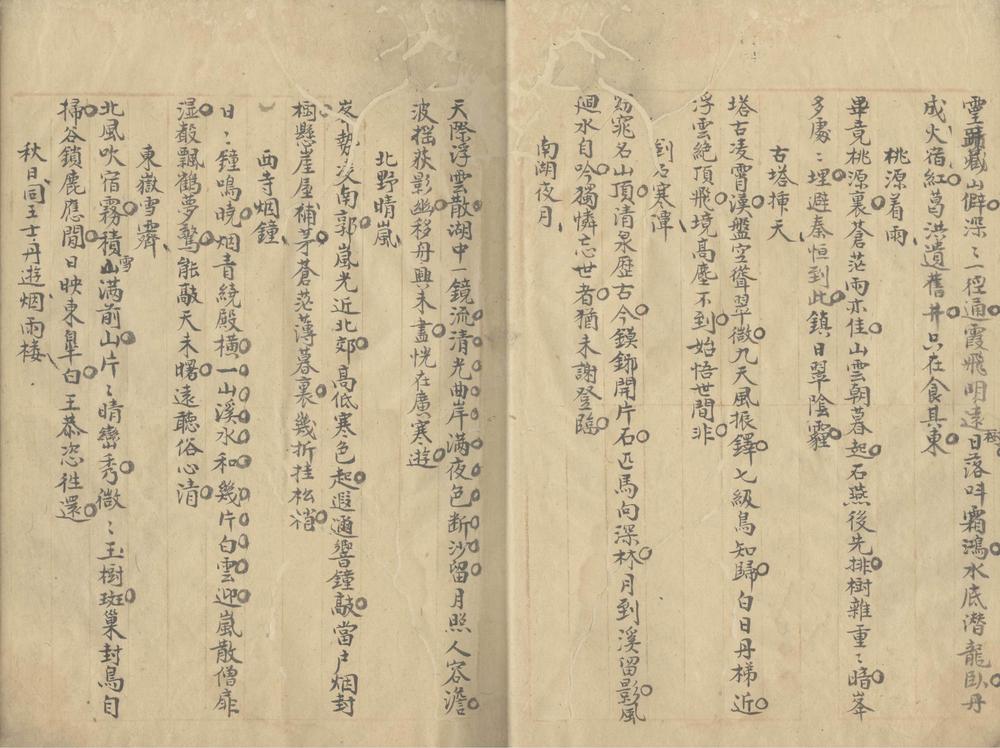 靈蹟藏山僻深〻一徑通霞飛明遠日落呌霜鴻水底潛龍臥丹
成火宿紅葛洪遺舊井只在食其東
桃源着雨
畢竟桃源裏蒼茫雨亦佳山雲朝暮起石燕後先排樹雜重〻暗峯
多處〻埋避秦恒到此鎮日翠陰霾
古塔揷天
塔古凌霄漢盤空聳翠微九天風振鐸七級鳥知歸白日丹梯近
浮雲絕頂飛境高塵不到始悟世間非
寒潭
窈窕名山頂清泉歷古今鏌鋣開片石匹馬向深林月到溪留影風
迴水自吟獨憐忘世者猶未謝登臨
南湖夜月
天際浮雲散湖中一鏡流清光曲岸滿夜色斷沙留月照人容澹
波搖荻影幽移舟興未盡恍在廣寒遊
北野晴嵐
岑勢凌南郭嵐光近北郊高低寒色起遐邇響鐘敲當户烟封
樹懸崖屋補茅蒼茫薄暮裏幾折挂松梢
西寺烟鐘
日〻鐘鳴曉烟青繞殿橫一山溪水和幾片白雲迎嵐散僧扉
濕殼飄鶴夢驚能敲天未曙遠聽俗心清
東嶽雪霽
北風吹宿霧積雪滿前山片〻晴巒秀微〻玉樹斑巢封鳥自
掃谷鎖鹿應閒日映東臯白王恭恣徃還
秋日同王士丹遊烟雨樓